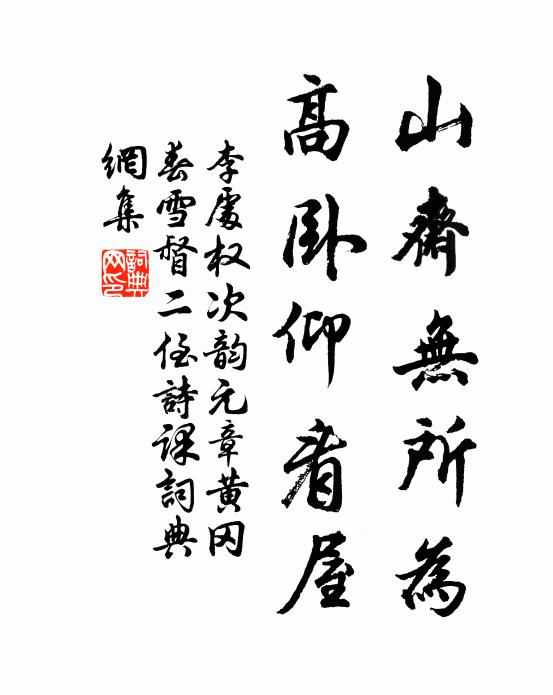 山齋無所為
高臥仰看屋
李處权次韵元章黄冈
春雪督二侄詩课詞典
網集
詞典網印